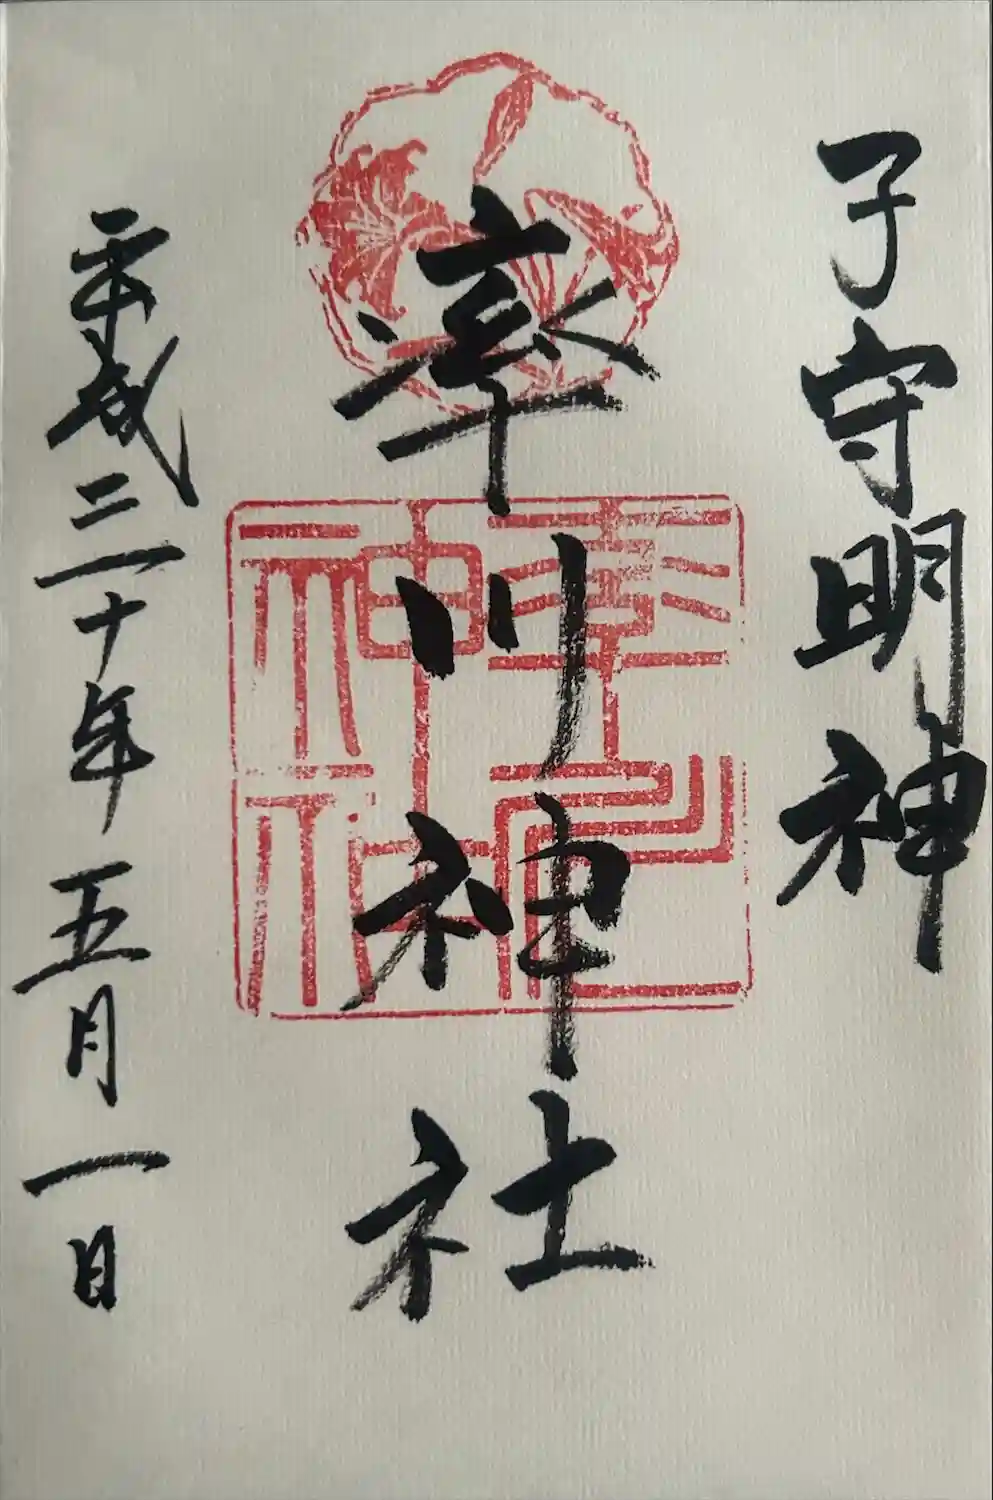 子守明神
率川神社
率川神社
平成三十年五月一日